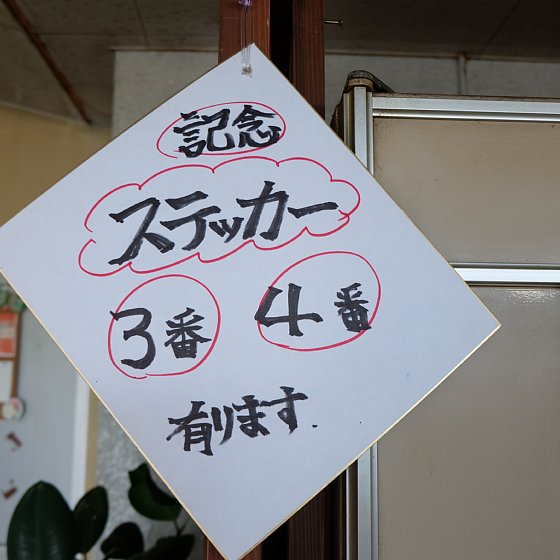 記念
ステッカー
3番 4番
有ります.